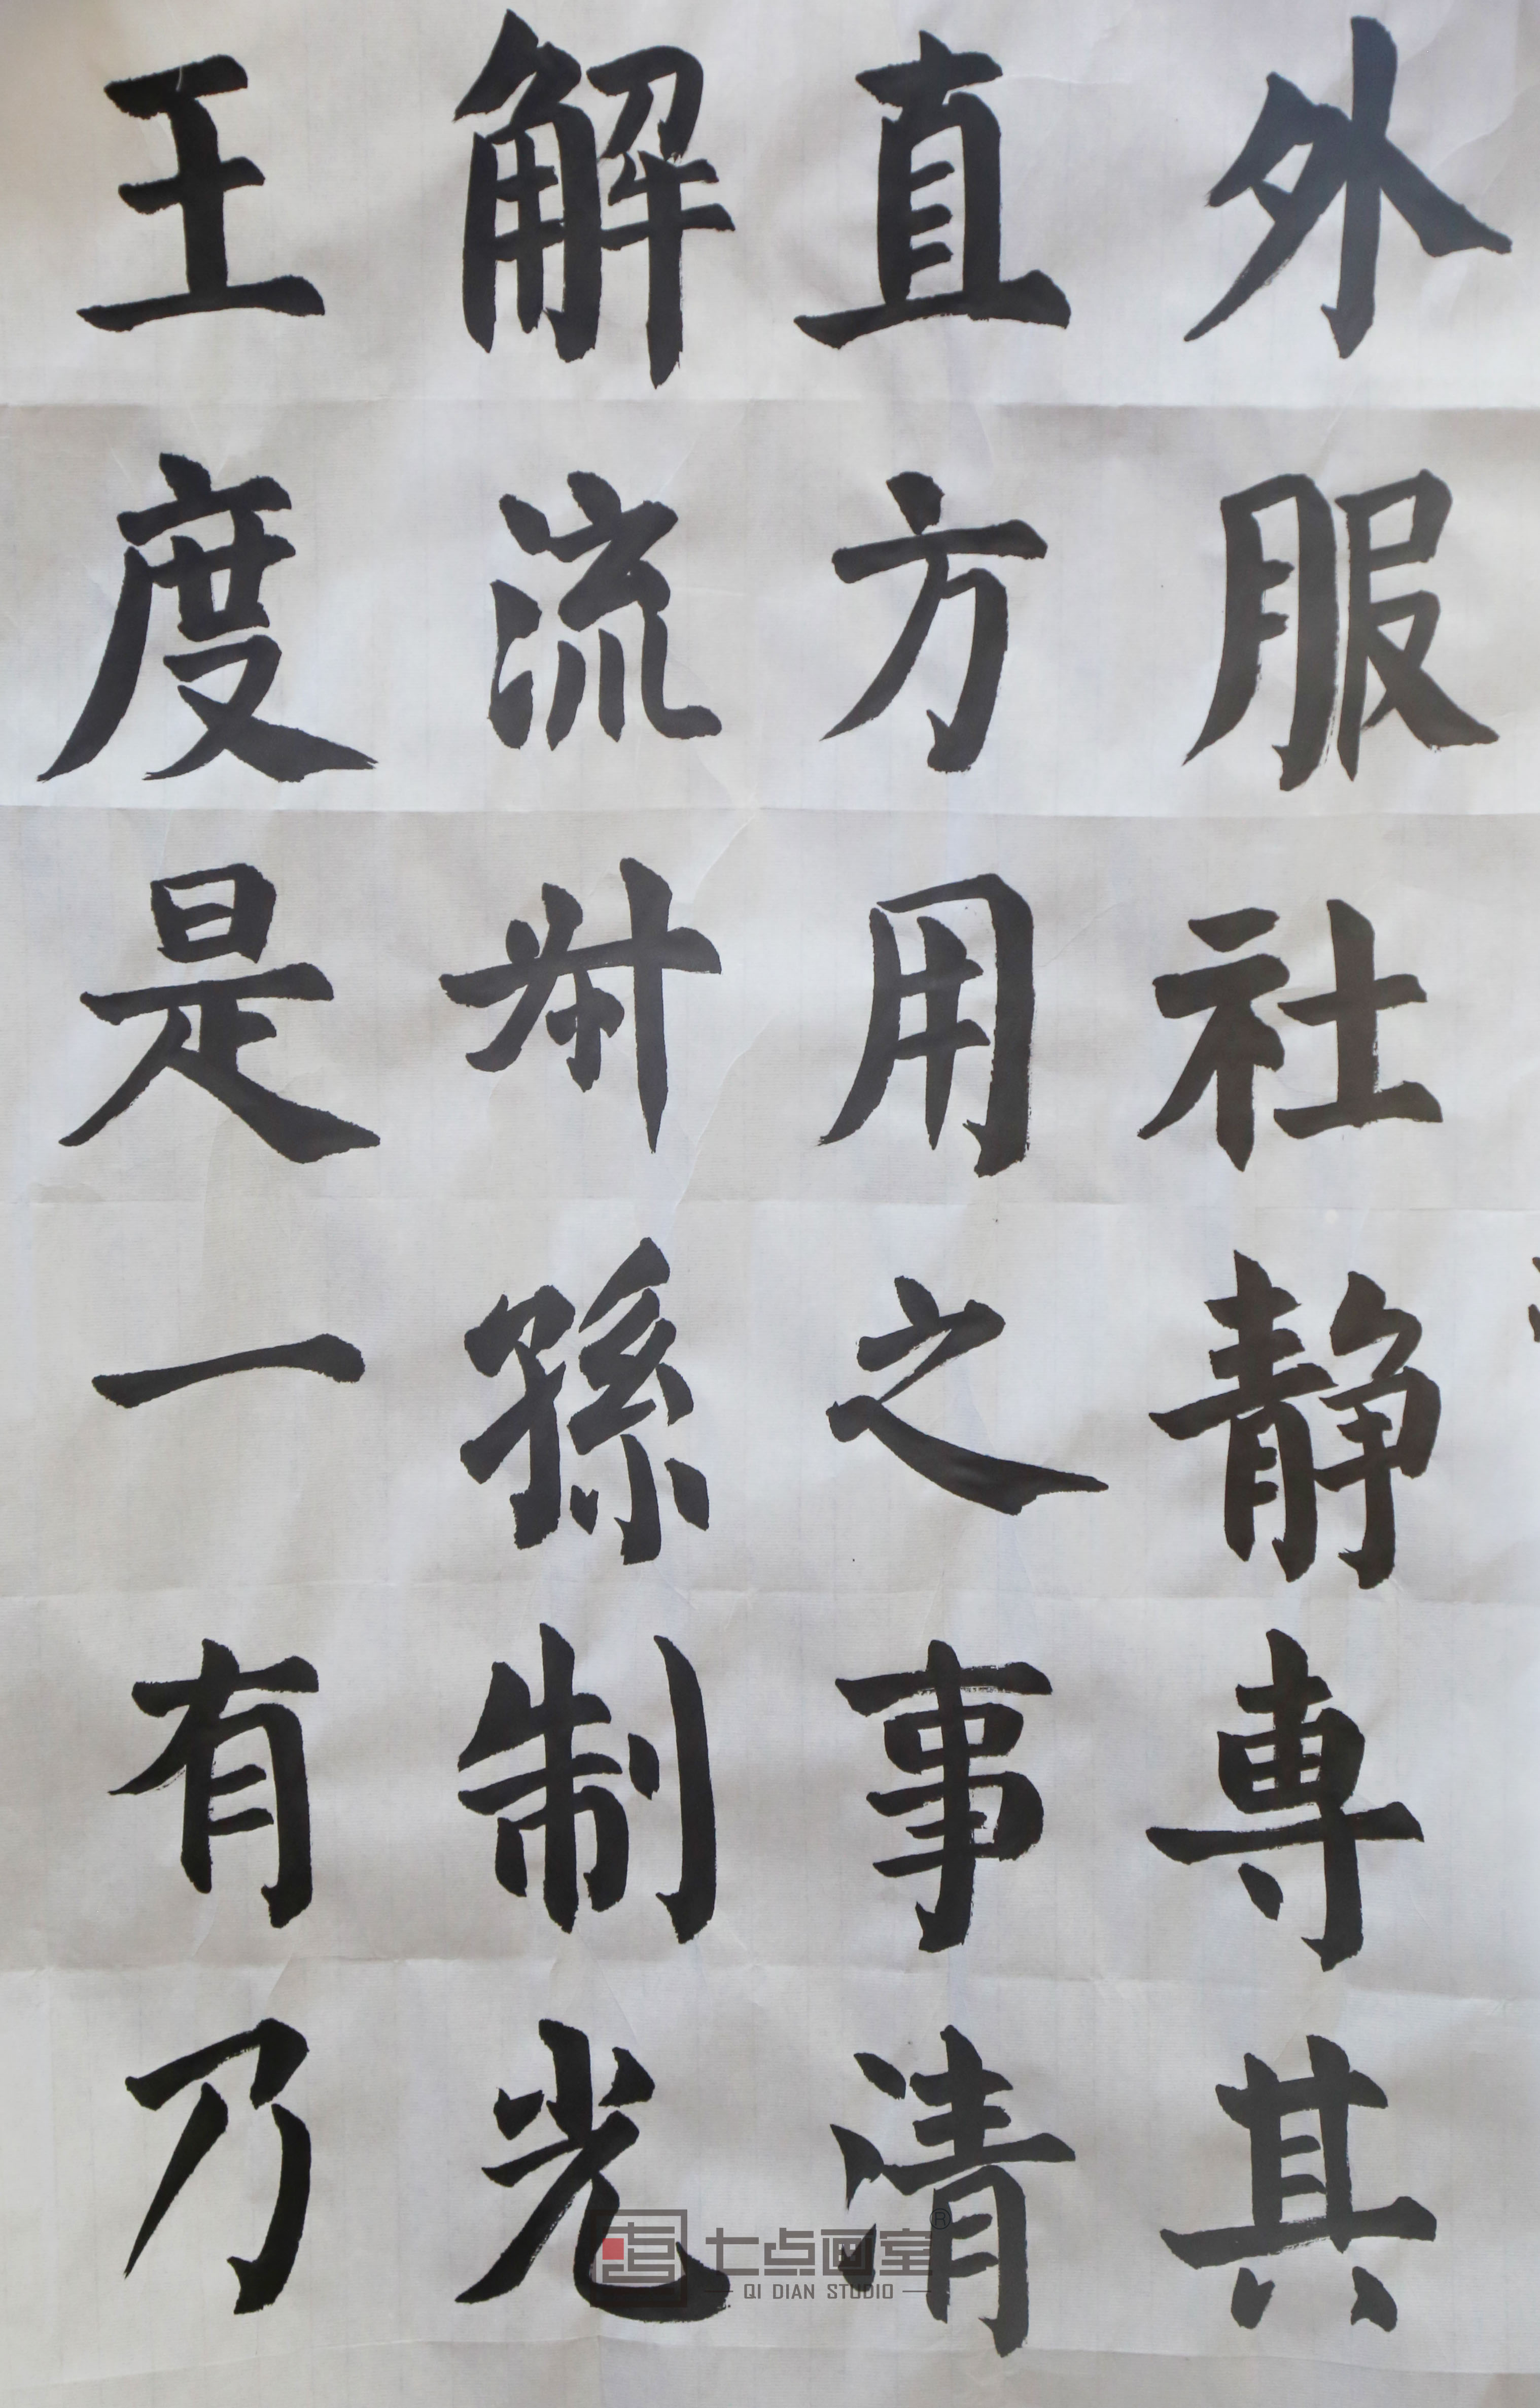 外服社静専其
直方用之事清
解流叔孫制光
王度是一有乃
七点画室®
QI DIAN STUDIO